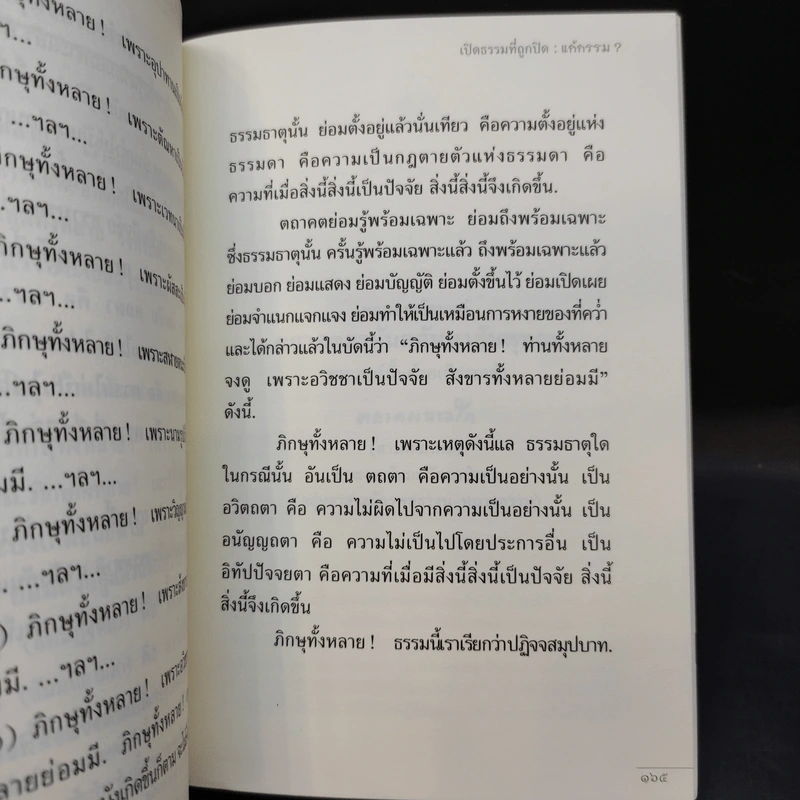 ภิกษุทั้งหลาย !
...ฯลฯ...
ภิกษุทั้งหลาย !
...ฯลฯ...
ภิกษุทั้งหลาย !
...ฯลฯ...
ภิกษุทั้งหลาย !
...ฯลฯ...
ภิกษุทั้งหลาย !
...ฯลฯ...
ภิกษุทั้งหลาย !
...ฯลฯ...
ภิกษุทั้งหลาย !
...ฯลฯ...
ภิกษุทั้งหลาย !
...ฯลฯ...
ภิกษุทั้งหลาย !
ย่อมมี. ภิกษุทั้งหลาย !
เปิดธรรมที่ถูกปิด : แก้กรรม ?
ธรรมธาตุนั้น ย่อมตั้งอยู่แล้วนั่นเทียว คือความตั้งอยู่แห่ง
ธรรมดา คือความเป็นกฎตายตัวแห่งธรรมดา คือ
ความที่เมื่อสิ่งนี้สิ่งนี้เป็นปัจจัย สิ่งนี้สิ่งนี้จึงเกิดขึ้น.
ตถาคตย่อมรู้พร้อมเฉพาะ ย่อมถึงพร้อมเฉพาะ
ซึ่งธรรมธาตุนั้น ครั้นรู้พร้อมเฉพาะแล้ว ถึงพร้อมเฉพาะแล้ว
ย่อมบอก ย่อมแสดง ย่อมบัญญัติ ย่อมตั้งขึ้นไว้ ย่อมเปิดเผย
ย่อมจำแนกแจกแจง ย่อมทำให้เป็นเหมือนการหงายของที่คว่ำ
และได้กล่าวแล้วในบัดนี้ว่า “ภิกษุทั้งหลาย ! ท่านทั้งหลาย
จงดู เพราะอวิชชาเป็นปัจจัย สังขารทั้งหลายย่อมมี”
ดังนี้.
ภิกษุทั้งหลาย ! เพราะเหตุดังนี้แล ธรรมธาตุใด
ในกรณีนั้น อันเป็น ตถตา คือความเป็นอย่างนั้น เป็น
อวิตถตา คือ ความไม่ผิดไปจากความเป็นอย่างนั้น เป็น
อนัญญถตา คือ ความไม่เป็นไปโดยประการอื่น เป็น
อิทัปปัจจยตา คือความที่เมื่อมีสิ่งนี้สิ่งนี้เป็นปัจจัย สิ่งนี้
สิ่งนี้จึงเกิดขึ้น
ภิกษุทั้งหลาย ! ธรรมนี้เราเรียกว่าปฏิจจสมุปบาท.
๑๖๕